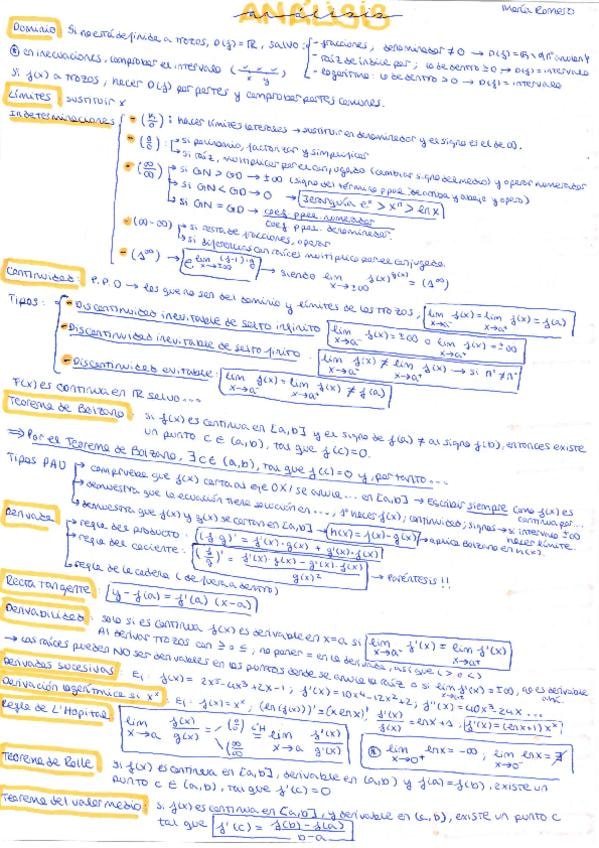 ANÁLISIS
María Romero
Dominio: Si no está definida a trozos, D(f) = ℝ, salvo: - fracciones, denominador ≠ 0 →
- raíz de índice par; lo de dentro ≥ 0 → D(f) = intervalo
- logaritmo: lo de dentro > 0 → D(f) = intervalo
en inecuaciones, comprobar el intervalo
Si f(x) a trozos, hacer D(f) por partes y comprobar partes comunes.
Límites: sustituir x
Indeterminaciones
- (k/0): hacer límites laterales → sustituir en denominador y el signo es el de ∞.
- (0/0): si polinomio, factorizar y simplificar
si raíz, multiplicar por el conjugado (cambiar signo del medio) y operar numerador
- (∞/∞) si GN > GD → ±∞ (signo del término ppal. de arriba y abajo y opero)
si GN < GD → 0 → Jerarquía eˣ > xⁿ > ln x
si GN = GD → coef. ppal. numerador / coef. ppal. denominador
- (∞-∞) si resta de fracciones, operar
si diferencias con raíces multiplico por el conjugado.
- (1^∞) → e^(lim x→±∞ (f-1)·g) → siendo lim x→±∞ f(x)^g(x) = (1^∞)
Continuidad: P.P.D → los que no son del dominio y límites de los trozos, lim x→a⁻ f(x) = lim x→a⁺ f(x) = f(a)
Tipos: - Discontinuidad inevitable de salto infinito lim x→a⁻ f(x) = ±∞ o lim x→a⁺ f(x) = ±∞
- Discontinuidad inevitable de salto finito: lim x→a⁻ f(x) ≠ lim x→a⁺ f(x) → si nº ≠ nº
- Discontinuidad evitable: lim x→a⁻ f(x) = lim x→a⁺ f(x) ≠ f(a)
F(x) es continua en ℝ salvo...
Teorema de Bolzano: si f(x) es continua en [a,b] y el signo de f(a) ≠ al signo f(b), entonces existe
un punto c ∈ (a,b), tal que f(c)=0.
⇒ Por el Teorema de Bolzano, ∃ c ∈ (a,b), tal que f(c)=0 y, por tanto...
Tipos PAU → comprueba que f(x) corta al eje OX / se anula ... en [a,b] → Escribir siempre como f(x) es continua por...
→ demuestra que la ecuación tiene solución en ..., 1º hacer f(x); continuidad; signos → si intervalo ±∞ hacer límite.
→ demuestra que f(x) y g(x) se cortan en [a,b] → h(x) = f(x)-g(x) → aplica Bolzano en h(x).
Derivada → regla del producto: (f·g)' = f'(x)·g(x) + g'(x)·f(x)
→ regla del cociente: (f/g)' = f'(x)·g(x) - g'(x)·f(x) / g(x)² → Paréntesis!!
→ regla de la cadena (de fuera a dentro)
Recta tangente: y - f(a) = f'(a) (x-a)
Derivabilidad: solo si es continua f(x) es derivable en x=a si lim x→a⁻ f'(x) = lim x→a⁺ f'(x)
Al derivar trozos con ≥ o ≤, no poner = en la derivada, así que (> o <)
→ Las raíces pueden NO ser derivables en los puntos donde se anula la raíz o si lim x→a f'(x) = ±∞, no es derivable
Derivadas sucesivas: Ej: f(x) = 2x⁵-4x³+2x-1; f'(x) = 10x⁴-12x²+2; f''(x) = 40x³-24x ...
Derivación logarítmica si xˣ: Ej: f(x) = xˣ, (ln(f(x)))' = (x ln x)'; f'(x)/f(x) = ln x + 1; f'(x) = (ln x + 1) xˣ
Regla de L'Hopital lim x→a f(x)/g(x) = (0/0) (∞/∞) L'H = lim x→a f'(x)/g'(x)
lim x→0⁺ ln x = -∞; lim x→0⁻ ln x = ∄
Teorema de Rolle: Si f(x) es continua en [a,b], derivable en (a,b) y f(a) = f(b), existe un
punto c ∈ (a,b), tal que f'(c)=0
Teorema del valor medio: si f(x) es continua en [a,b], y derivable en (a,b), existe un punto c
tal que f'(c) = f(b) - f(a) / b-a